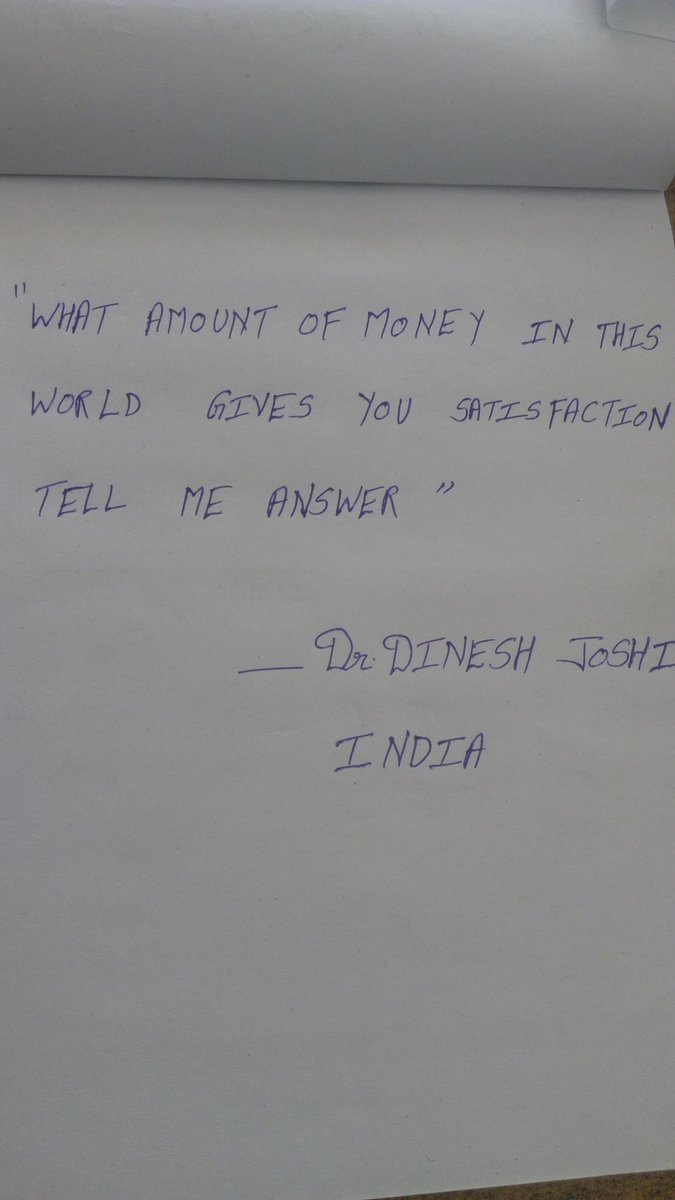 "WHAT AMOUNT OF MONEY IN THIS
WORLD GIVES YOU SATISFACTION
TELL ME ANSWER"
— Dr. DINESH JOSHI
INDIA